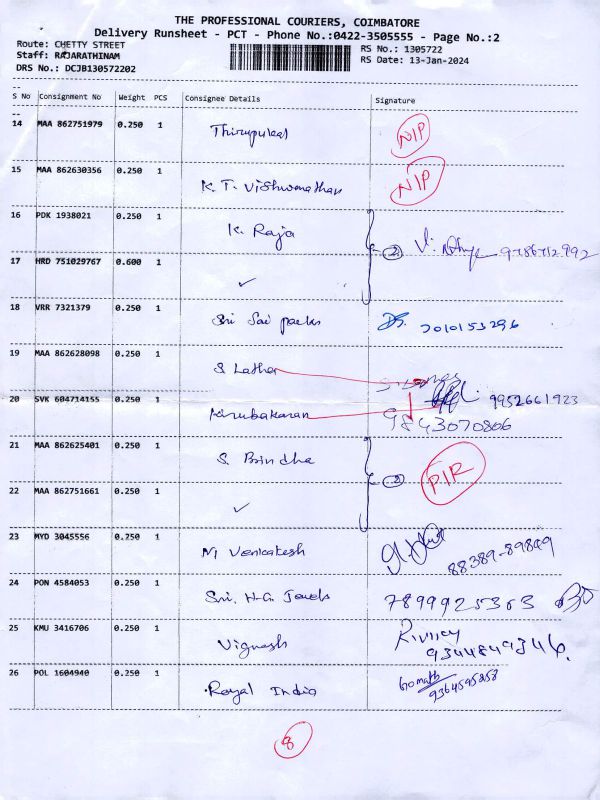 THE PROFESSIONAL COURIERS, COIMBATORE
Delivery Runsheet - PCT - Phone No.:0422-3505555 - Page No.:2
Route: CHETTY STREET
RS No.: 1305722
Staff: RAJARATHINAM
RS Date: 13-Jan-2024
DRS No.: DCJB130572202
S No Consignment No Weight PCS Consignee Details Signature
14 MAA 862751979 0.250 1 Thirupukal NIP
15 MAA 862630356 0.250 1 K. T. Vishwanathan NIP
16 PDK 1938021 0.250 1 K. Raja
17 HRD 751029767 0.600 1 ✓ 2 9786712992
18 VRR 7321379 0.250 1 Sri Sai parks 7010153296
19 MAA 862628098 0.250 1 S Latha
20 SVK 604714155 0.250 1 Kirubakaran 9952661923
9843070806
21 MAA 862625401 0.250 1 S. Brindha
22 MAA 862751661 0.250 1 ✓ 2 PIR
23 MYD 3045556 0.250 1 M Venkatesh 88389-89849
24 PON 4584053 0.250 1 Sri. H.G. Jewels 7899925363
25 KMU 3416706 0.250 1 Vignesh
9344849346.
26 POL 1604940 0.250 1 Royal India Gomathi
9364595858
8